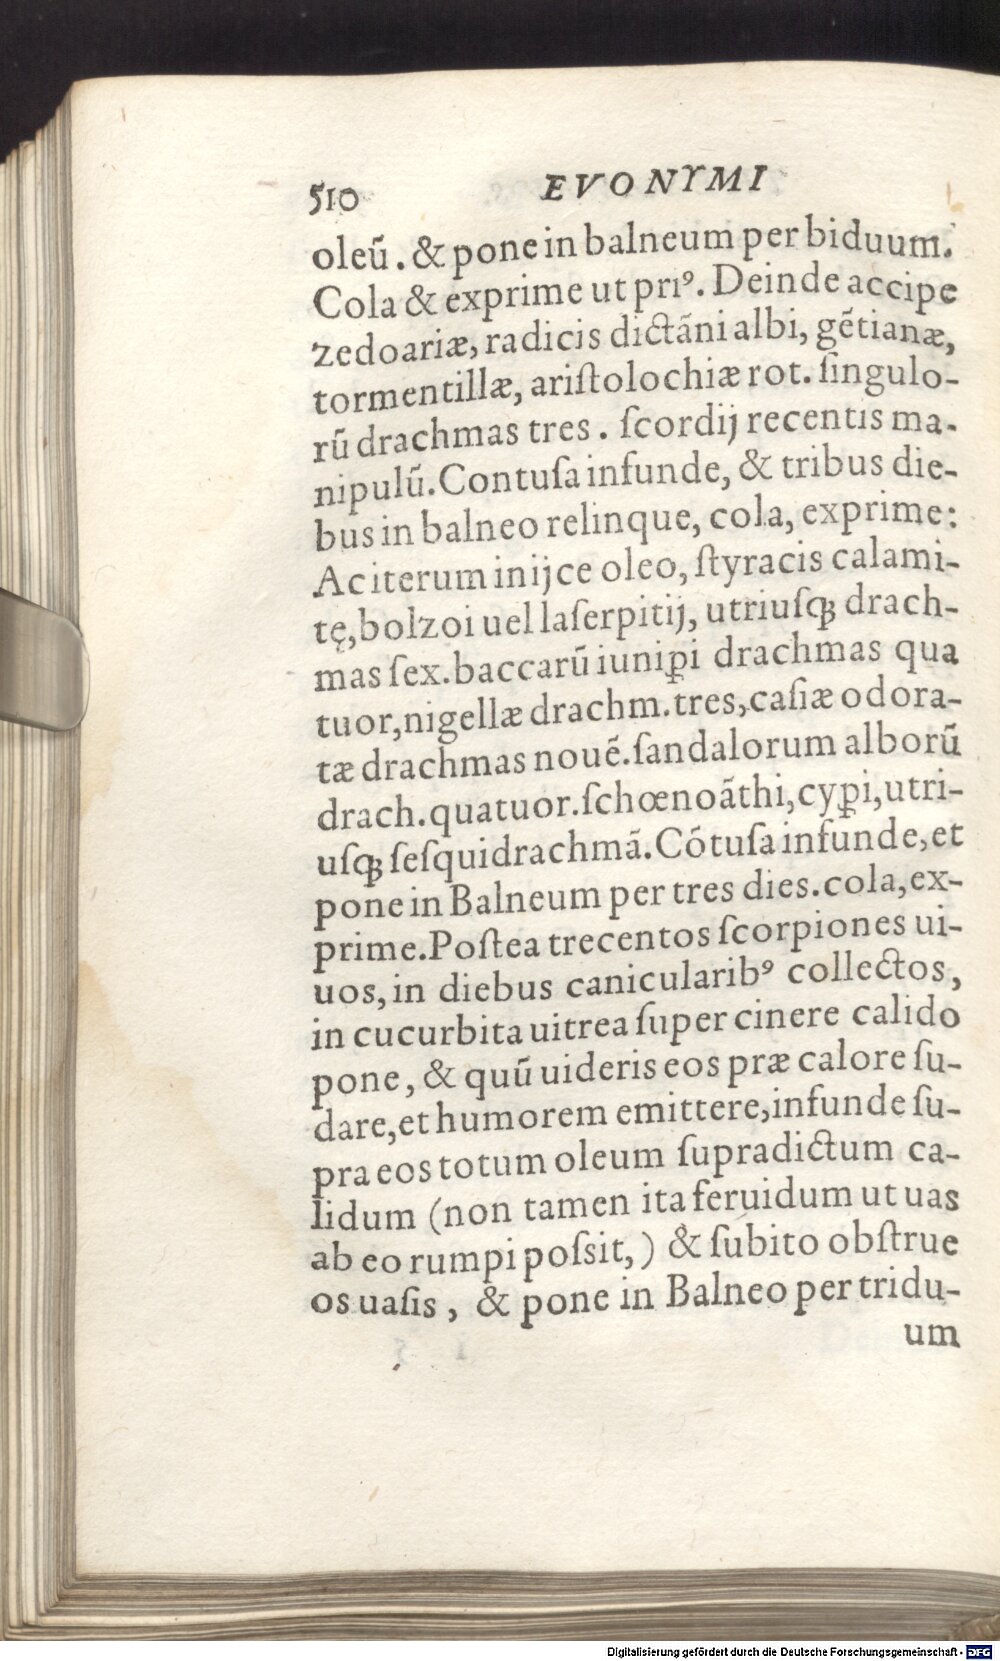 510 EVONYMI
oleũ. & pone in balneum per biduum.
Cola & exprime ut priꝰ. Deinde accipe
zedoariæ, radicis dictãni albi, gẽtianæ,
tormentillæ, ariſtolochiæ rot. ſingulo-
rũ drachmas tres. ſcordij recentis ma-
nipulũ. Contuſa infunde, & tribus die-
bus in balneo relinque, cola, exprime:
Ac iterum inijce oleo, ſtyracis calami-
tę, bolzoi uel laſerpitij, utriuſqꝫ drach-
mas ſex. baccarũ iuniꝑi drachmas qua
tuor, nigellæ drachm. tres, caſiæ odora-
tæ drachmas nouẽ. ſandalorum alborũ
drach. quatuor. ſchœnoãthi, cyꝑi, utri-
uſqꝫ ſeſquidrachmã. Cõtuſa infunde, et
pone in Balneum per tres dies. cola, ex-
prime. Poſtea trecentos ſcorpiones ui-
uos, in diebus canicularibꝰ collectos,
in cucurbita uitrea ſuper cinere calido
pone, & quũ uideris eos præ calore ſu-
dare, et humorem emittere, infunde ſu-
pra eos totum oleum ſupradictum ca-
lidum (non tamen ita feruidum ut uas
ab eo rumpi poſsit,) & ſubito obſtrue
os uaſis, & pone in Balneo per tridu-
um
Digitalisierung gefördert durch die Deutsche Forschungsgemeinschaft - DFG